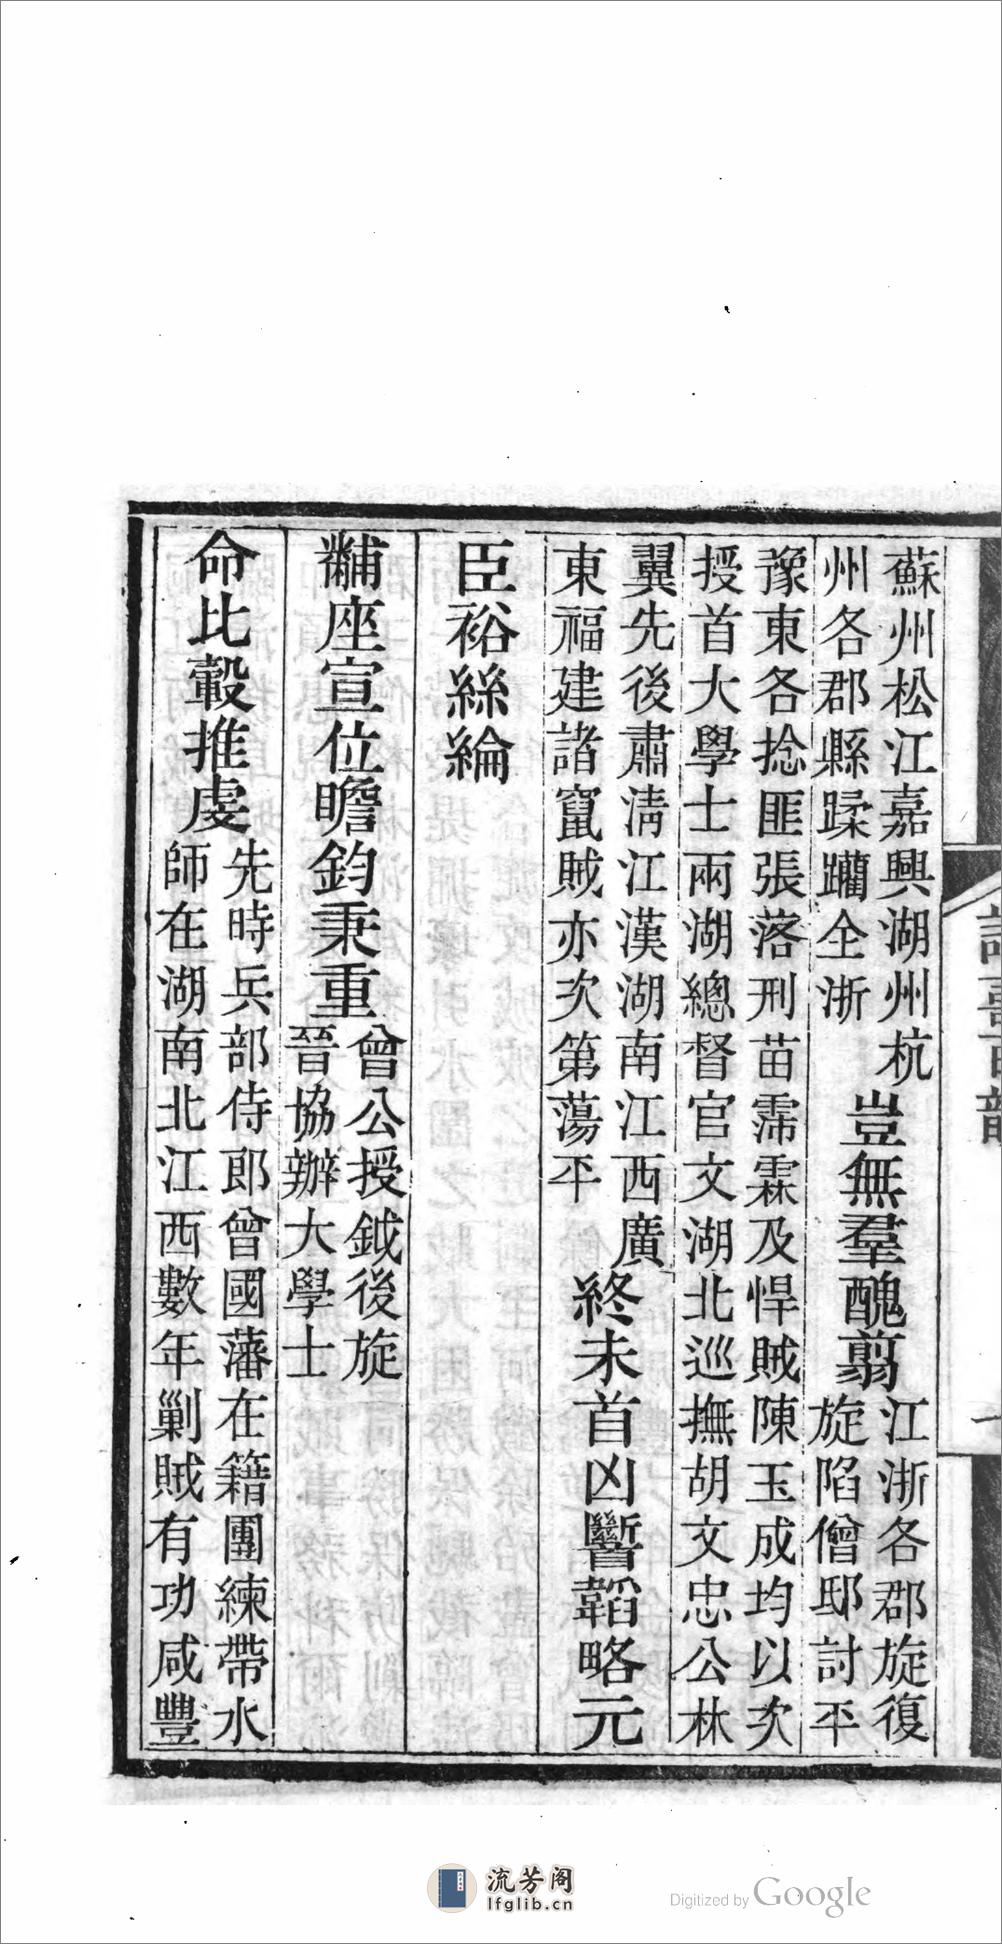 蘇州松江嘉興湖州杭
州各郡縣蹂躪全浙
豈無羣醜翦
江浙各郡旋復
旋陷僧邸討平
豫東各捻匪張落刑苗霈霖及悍賊陳玉成均以次
授首大學士兩湖總督官文湖北巡撫胡文忠公林
翼先後肅淸江漢湖南江西廣
東福建諸竄賊亦次第蕩平
終未首凶㬱韜略元
臣裕絲綸
黼座宣位瞻鈞秉重
曾公授鉞後旋
晉協辦大學士
命比轂推虔
先時兵部侍郎曾國藩在籍團練帶水
師在湖南北江西數年剿賊有功咸豐
流芳阁
lfglib.cn
Digitized by Google